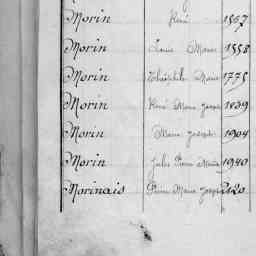 Morin René 1557
Morin Louis Marie 1558
Morin Théophile Marie 1775
Morin René Marie Joseph 1839
Morin Marie Joseph 1904
Morin Jules Pierre Marie 1940
Morinais Pierre Marie Joseph 2120